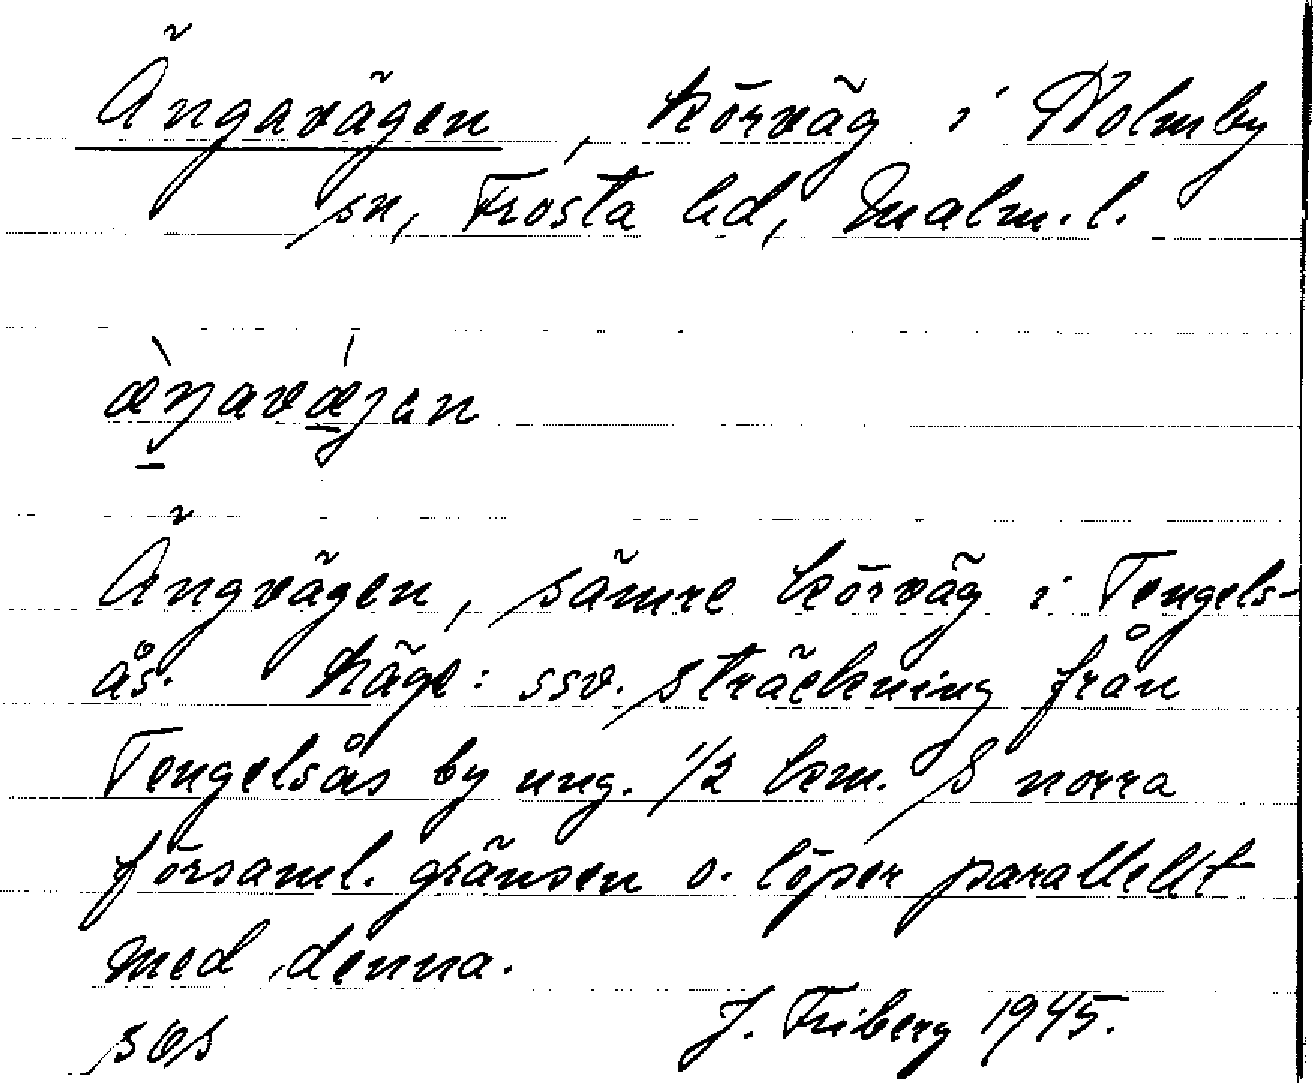 Ängavägen, körväg i Holmby
sn, Frosta hd, Malm. l.
æ̀ŋavǽjen
Ängvägen, sämre körväg i Tengels-
ås. Läge: ssv. sträckning från
Tengelsås by ung. 1/2 km. S norra
församl. gränsen o. löper parallellt
med denna.
J. Friberg 1945.